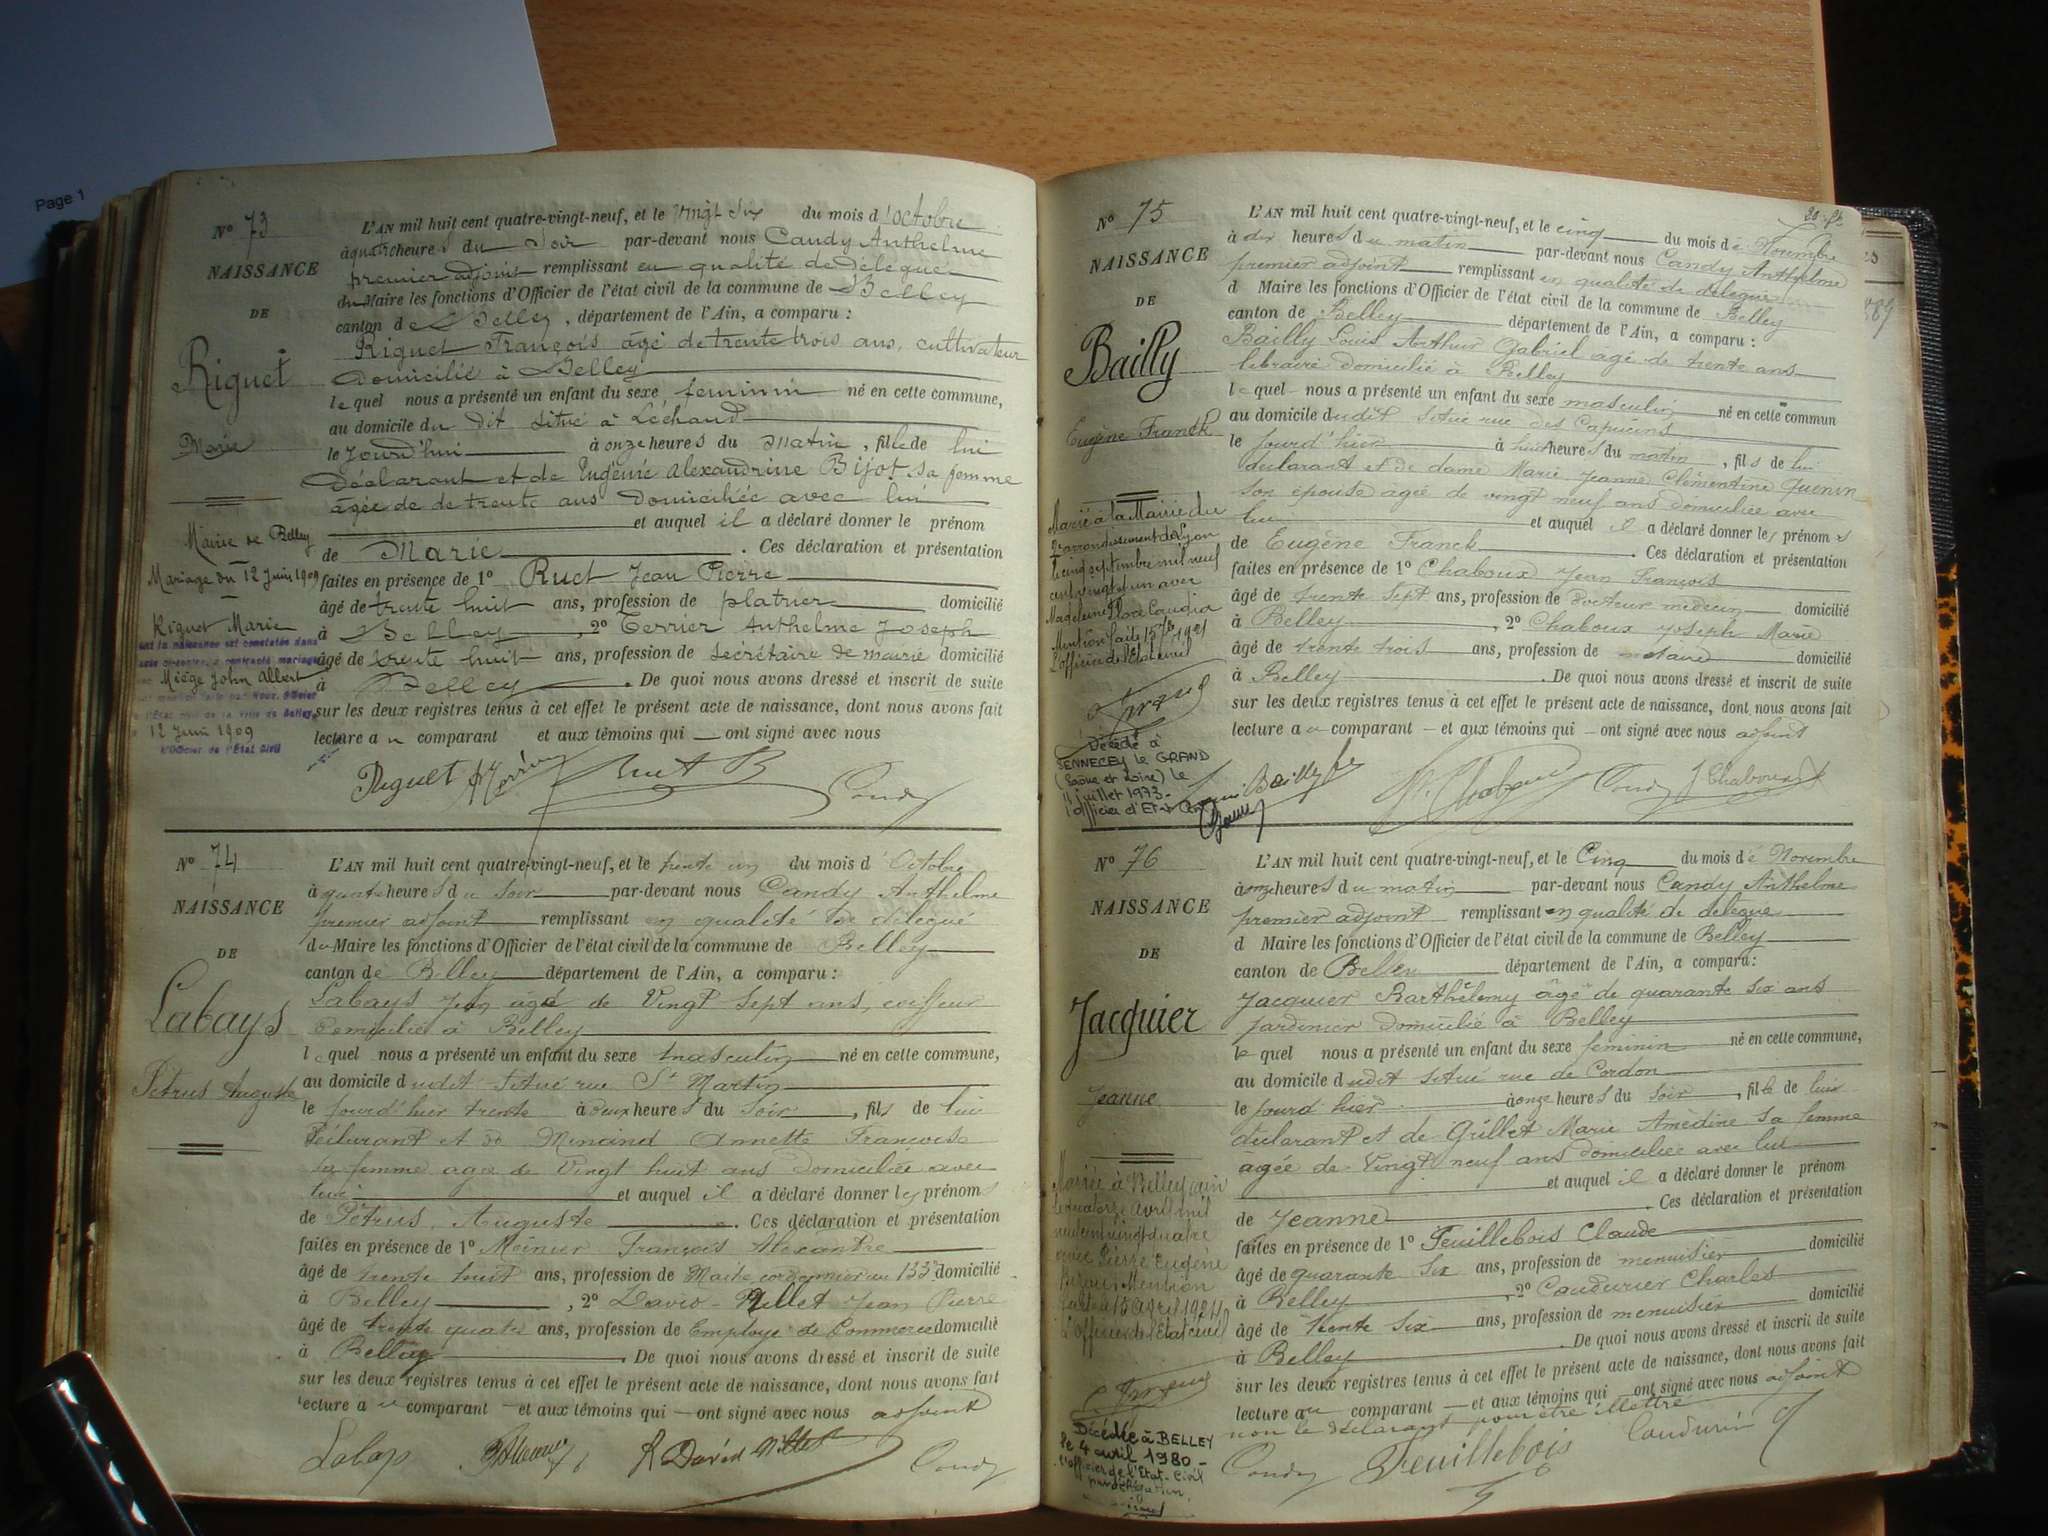 Page 1
N° 73
NAISSANCE
DE
Riguet
Marie
Mairie de Belley
Mariage du 12 Juin 1909
Riguet Marie
dont la naissance est constatée dans
Miège John Albert
l'État civil de la ville de Belley
12 Juin 1909
L'Officier de l'État Civil
L'AN mil huit cent quatre-vingt-neuf, et le vingt six du mois d'octobre
à quatre heures du soir par-devant nous Candy Anthelme
premier adjoint remplissant en qualité de délégué
du Maire les fonctions d'Officier de l'état civil de la commune de Belley
canton de Belley, département de l'Ain, a comparu :
Riguet François âgé de trente trois ans, cultivateur
domicilié à Belley
lequel nous a présenté un enfant du sexe feminin né en cette commune,
au domicile du dit situé à Léchaud
le jourd'hui à onze heures du matin, fille de lui
déclarant et de Eugénie Alexandrine Bijot sa femme
âgée de de trente ans domiciliée avec lui
et auquel il a déclaré donner le prénom
de Marie. Ces déclaration et présentation
faites en présence de 1° Ruet Jean Pierre
âgé de trente huit ans, profession de platrier domicilié
à Belley, 2° Terrier Anthelme Joseph
âgé de trente huit ans, profession de sécrétaire de mairie domicilié
à Belley. De quoi nous avons dressé et inscrit de suite
sur les deux registres tenus à cet effet le présent acte de naissance, dont nous avons fait
lecture au comparant et aux témoins qui — ont signé avec nous
Riguet Terrier Ruet Candy
N° 74
NAISSANCE
DE
Labays
Pétrus Auguste
L'AN mil huit cent quatre-vingt-neuf, et le trente un du mois d'Octobre
à quatre heures du soir par-devant nous Candy Anthelme
premier adjoint remplissant en qualité de délégué
du Maire les fonctions d'Officier de l'état civil de la commune de Belley
canton de Belley département de l'Ain, a comparu :
Labays Jean âgé de Vingt sept ans, coiffeur
domicilié à Belley
lequel nous a présenté un enfant du sexe masculin né en cette commune,
au domicile dudit situé rue St Martin
le jourd'hier trente à deux heures du soir, fils de lui
déclarant et de Annette Françoise
sa femme agée de Vingt huit ans domiciliée avec
lui et auquel il a déclaré donner les prénoms
de Pétrus, Auguste. Ces déclaration et présentation
faites en présence de 1° François Alexandre
âgé de trente huit ans, profession de Maitre cordonnier au 133e domicilié
à Belley, 2° David-Nillet Jean Pierre
âgé de trente quatre ans, profession de Employé de Commerce domicilié
à Belley. De quoi nous avons dressé et inscrit de suite
sur les deux registres tenus à cet effet le présent acte de naissance, dont nous avons fait
lecture au comparant — et aux témoins qui — ont signé avec nous adjoint
Labays David Nillet Candy
N° 75
NAISSANCE
DE
Bailly
Eugène Franck
Marié à la Mairie du
2e arrondissement de Lyon
le cinq septembre mil neuf
cent vingt et un avec
Magdeleine Flore Claudia
Mention faite 15 7bre 1921
L'officier de l'Etat civil
Décédé à
SENNECEY le GRAND
(Saône et Loire) le
11 juillet 1973-
l'officier d'Etat Civil
L'AN mil huit cent quatre-vingt-neuf, et le cinq du mois de Novembre
à dix heures du matin par-devant nous Candy Anthelme
premier adjoint remplissant en qualité de délégué
d Maire les fonctions d'Officier de l'état civil de la commune de Belley
canton de Belley département de l'Ain, a comparu :
Bailly Louis Arthur Gabriel âgé de trente ans
libraire domicilié à Belley
lequel nous a présenté un enfant du sexe masculin né en cette commun
au domicile dudit situé rue des Capucins
le jourd'hier à huit heures du matin, fils de lui
déclarant et de dame Marie Jeanne Clémentine Guenin
son épouse agée de vingt neuf ans domiciliée avec
lui et auquel il a déclaré donner les prénoms
de Eugène Franck. Ces déclaration et présentation
faites en présence de 1° Chaboux Jean François
âgé de trente sept ans, profession de docteur médecin domicilié
à Belley, 2° Chaboux Joseph Marie
âgé de trente trois ans, profession de notaire domicilié
à Belley. De quoi nous avons dressé et inscrit de suite
sur les deux registres tenus à cet effet le présent acte de naissance, dont nous avons fait
lecture au comparant — et aux témoins qui — ont signé avec nous adjoint
Louis Bailly Chaboux Candy J Chaboux
N° 76
NAISSANCE
DE
Jacquier
Jeanne
Mariée à Belley (Ain)
le quatorze Avril mil
neuf cent vingt quatre
avec Pierre Eugène
Mention
faite le 15 Avril 1924
L'Officier de l'Etat civil
Décédée à BELLEY
le 4 avril 1980-
l'officier de l'Etat-Civil
par délégation,
L'AN mil huit cent quatre-vingt-neuf, et le Cinq du mois de Novembre
à onze heures du matin par-devant nous Candy Anthelme
premier adjoint remplissant en qualité de délégué
d Maire les fonctions d'Officier de l'état civil de la commune de Belley
canton de Belley département de l'Ain, a comparu:
Jacquier Barthélemy âgé de quarante six ans
jardinier domicilié à Belley
lequel nous a présenté un enfant du sexe feminin né en cette commune,
au domicile dudit situé rue de Cordon
le jourd'hier à onze heures du soir, fille de lui
déclarant et de Grillet Marie Amédine sa femme
âgée de Vingt neuf ans domiciliée avec lui
et auquel il a déclaré donner le prénom
de Jeanne. Ces déclaration et présentation
faites en présence de 1° Feuillebois Claude
âgé de quarante six ans, profession de menuisier domicilié
à Belley, 2° Caudurier Charles
âgé de trente six ans, profession de menuisier domicilié
à Belley. De quoi nous avons dressé et inscrit de suite
sur les deux registres tenus à cet effet le présent acte de naissance, dont nous avons fait
lecture au comparant — et aux témoins qui — ont signé avec nous adjoint
non le déclarant pour être illettré
Candy Feuillebois Caudurier